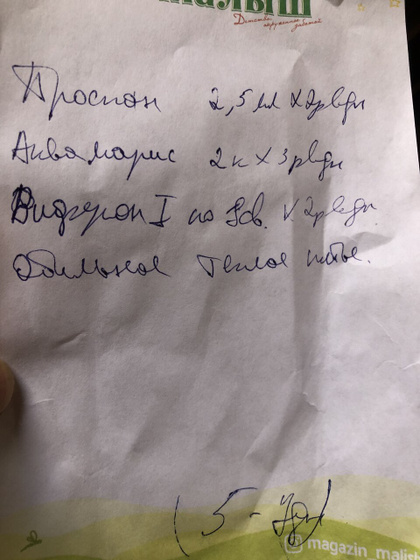 МАЛЫШ
Детство окруженное заботой
Проспан 2,5 мл х 2 р в дн
Аквамарис 2 к х 3 р в дн
Виферон I по 1 св. х 2 р в дн.
Обильное теплое питье.
(5 - 7 дн)
magazin_malish